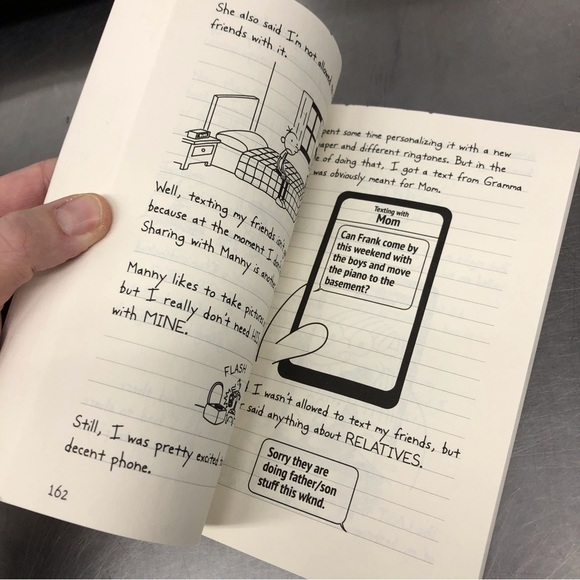 She also said I'm not allowed
friends with it.
Well, texting my friends isn't
because at the moment I don't
Sharing with Manny is another
Manny likes to take pictures
but I really don't need HIS
with MINE.
FLASH
Still, I was pretty excited
decent phone.
162
spent some time personalizing it with a new
paper and different ringtones. But in the
of doing that, I got a text from Gramma
was obviously meant for Mom.
Texting with
Mom
Can Frank come by
this weekend with
the boys and move
the piano to the
basement?
I wasn't allowed to text my friends, but
said anything about RELATIVES.
Sorry they are
doing father/son
stuff this wknd.